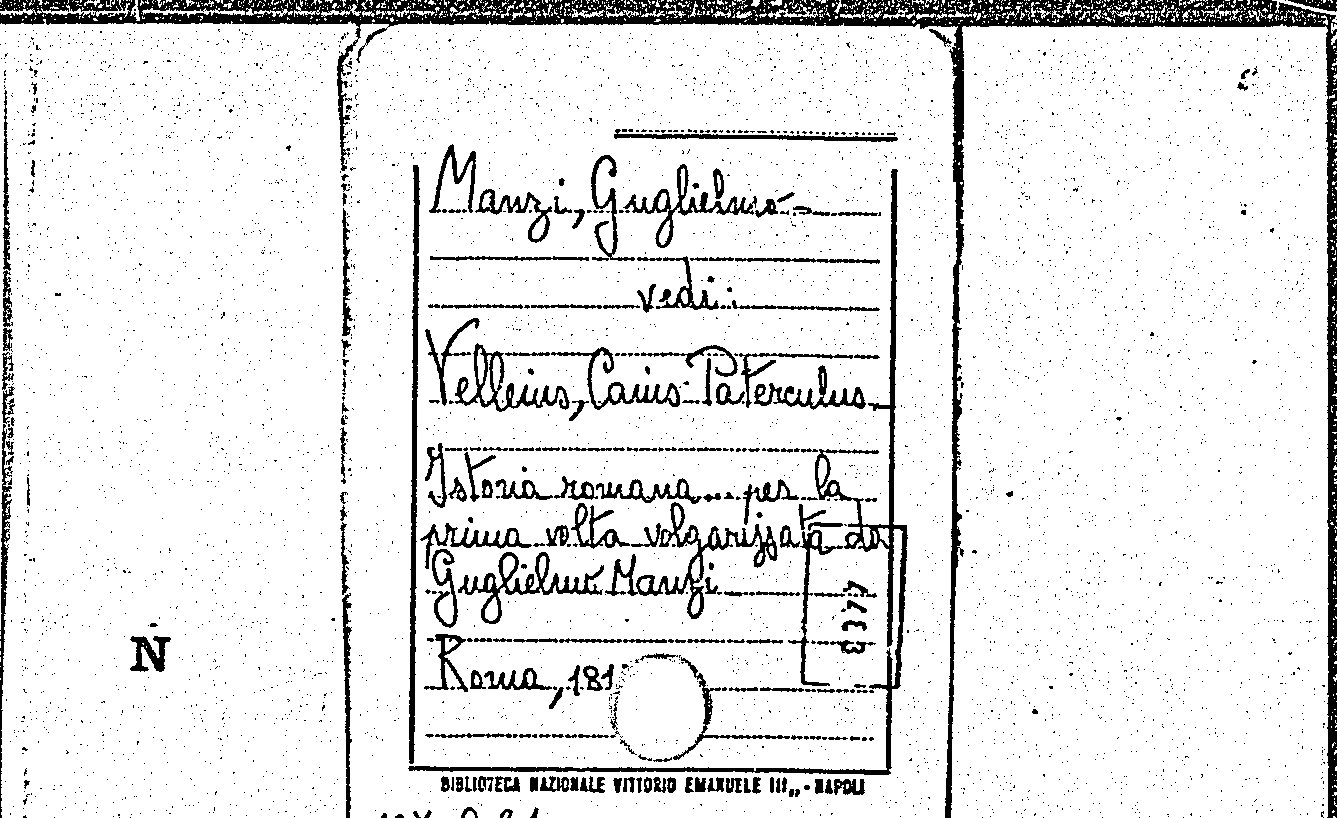 Manzi, Guglielmo-
vedi:
Velleius, Caius Paterculus
Istoria romana... per la
prima volta volgarizzata da
Guglielmo Manzi
Roma, 181
BIBLIOTECA NAZIONALE VITTORIO EMANUELE III,, - NAPOLI
N